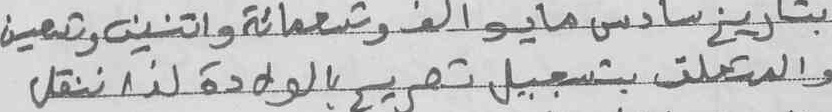 بتاريخ سادس مايو الف وتسعمائة واتنين وتسعين
والمتعلق بتسجيل تصريح بالولادة لذا ننقل